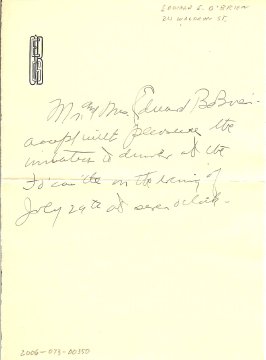 EDWARD E. O'BRIEN
Mr. and Mrs. Edward B. O'Brien
accept with pleasure the
invitation to dinner at the
on the evening of
July 29th at seven o'clock.
2006-073-00350